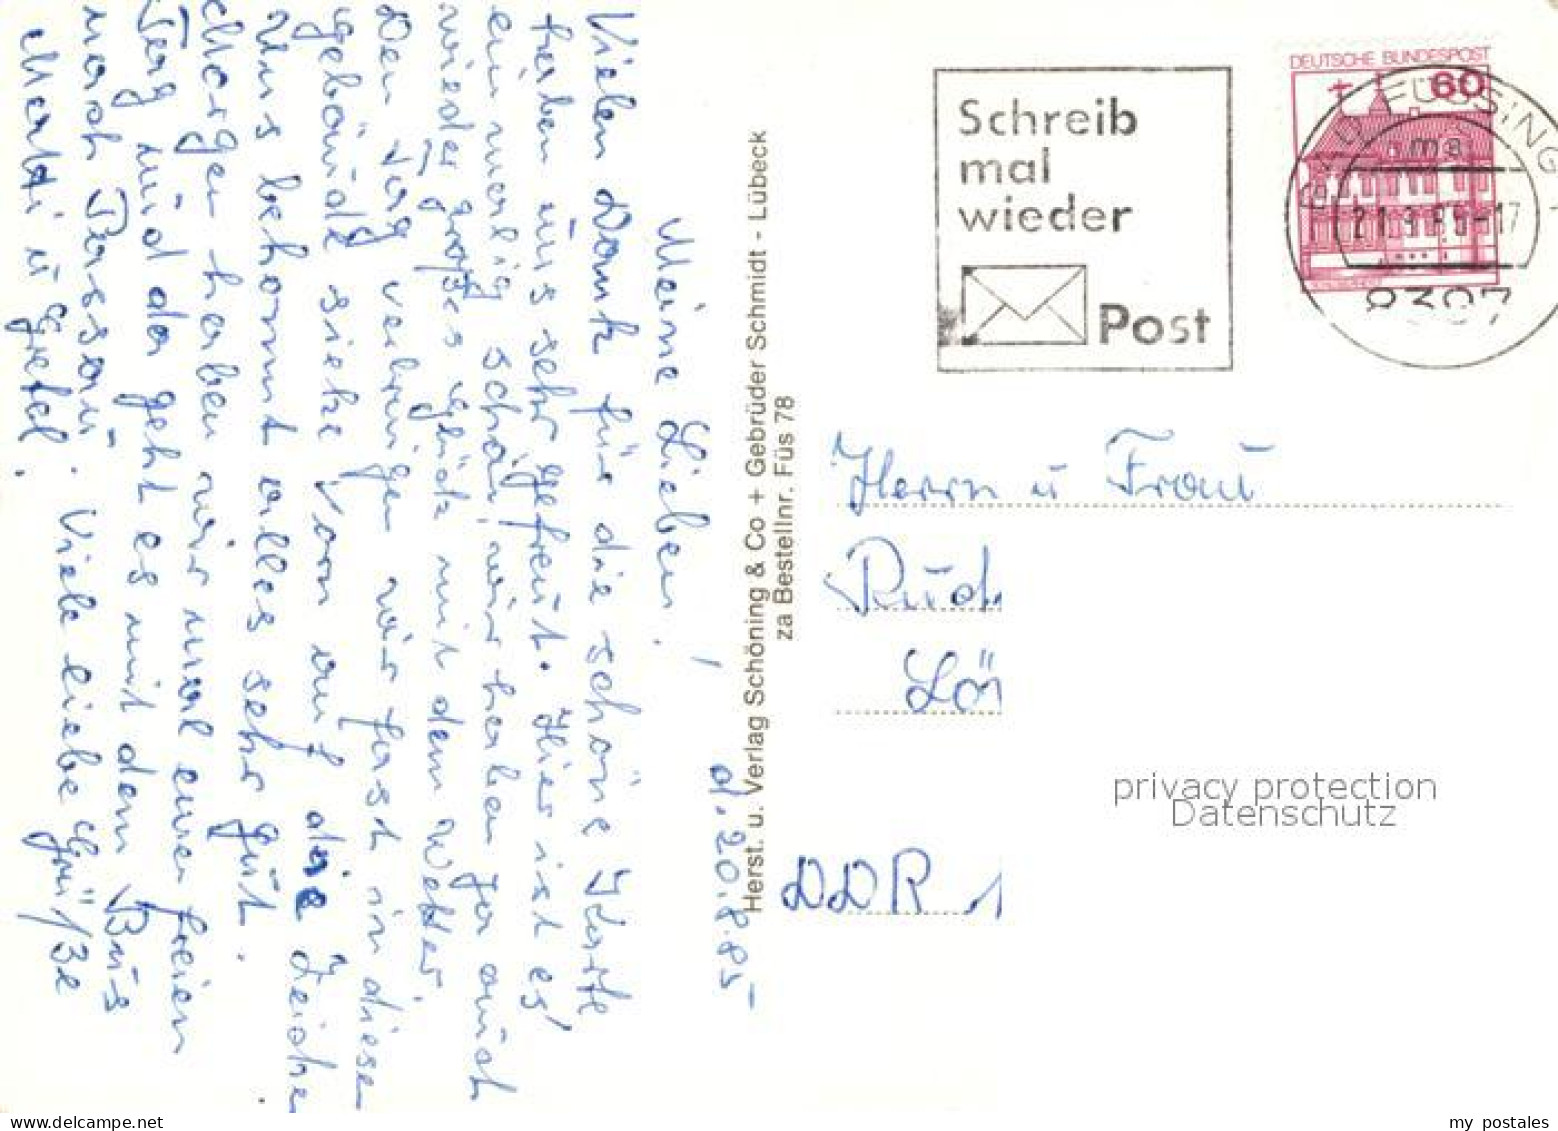 d. 20.8.85
Meine Lieben!
Vielen Dank für die schöne Karte
haben uns sehr gefreut. Hier ist es
ein malig schön, wir haben ja auch
wieder großes Glück mit dem Wetter.
Den Tag verbringen wir fast in diesen
gebäude siehe Vorn auf die Zeichen
Uns bekommt alles sehr gut.
Morgen haben wir mal einen freien
Tag und da geht es mit dem Bus
nach Passau. Viele liebe Grüße
Marti u Gretel.
Herst. u. Verlag Schöning & Co + Gebrüder Schmidt - Lübeck
za Bestellnr. Füs 78
Schreib
mal
wieder
Post
DEUTSCHE BUNDESPOST
60
BAD FÜSSING 1
ma
21.8.85-17
8397
Herrn u Frau
Rud
Lö
DDR 1
privacy protection
Datenschutz
my postales